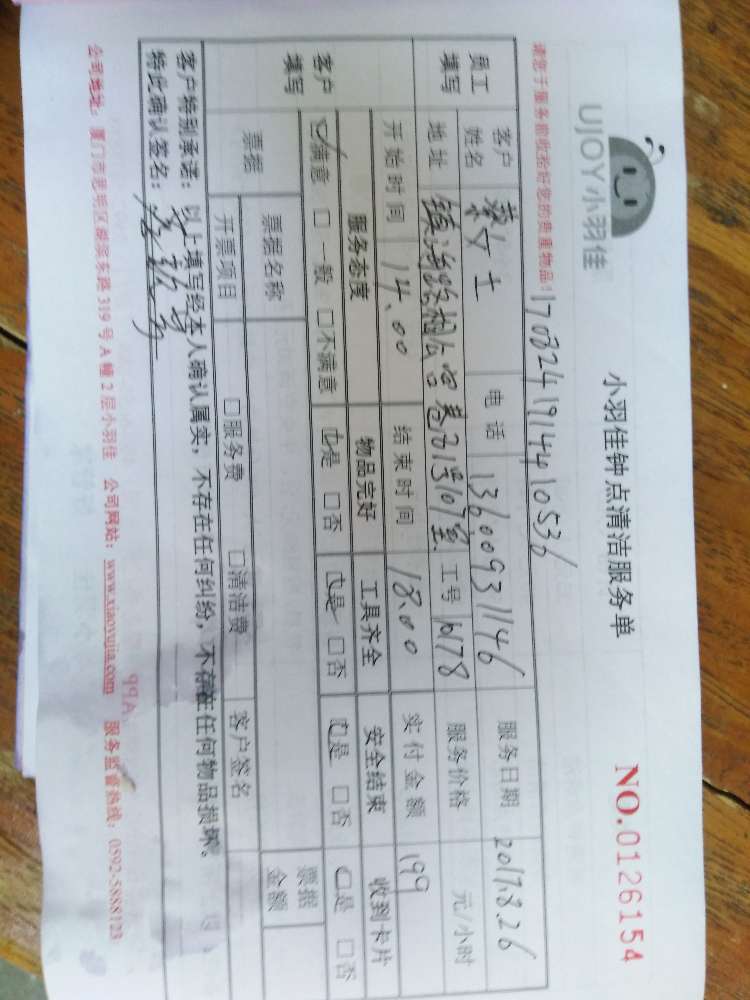 UJOY小羽佳
小羽佳钟点清洁服务单
NO.0126154
请您于服务前收捡好您的贵重物品!
1708241914410536
员工填写 客户姓名 蔡女士 电话 13600931146 服务日期 2017.8.26
地址 镇海路相公宫巷 号107室 工号 10178 服务价格 元/小时
客户填写 开始时间 14.00 结束时间 18.00 实付金额 199
服务态度 物品完好 工具齐全 安全结束 收到卡片
☑满意 □一般 □不满意 ☑是 □否 ☑是 □否 ☑是 □否 ☑是 □否
票据 票据名称 票据金额
开票项目 □服务费 □清洁费 客户签名
客户特别承诺:以上填写经本人确认属实,不存在任何纠纷,不存在任何物品损坏。
特此确认签名:
99A
公司地址:厦门市思明区湖滨东路319号A幢2层小羽佳 公司网站:www.xiaoyujia.com 服务监督热线:0592-5888123